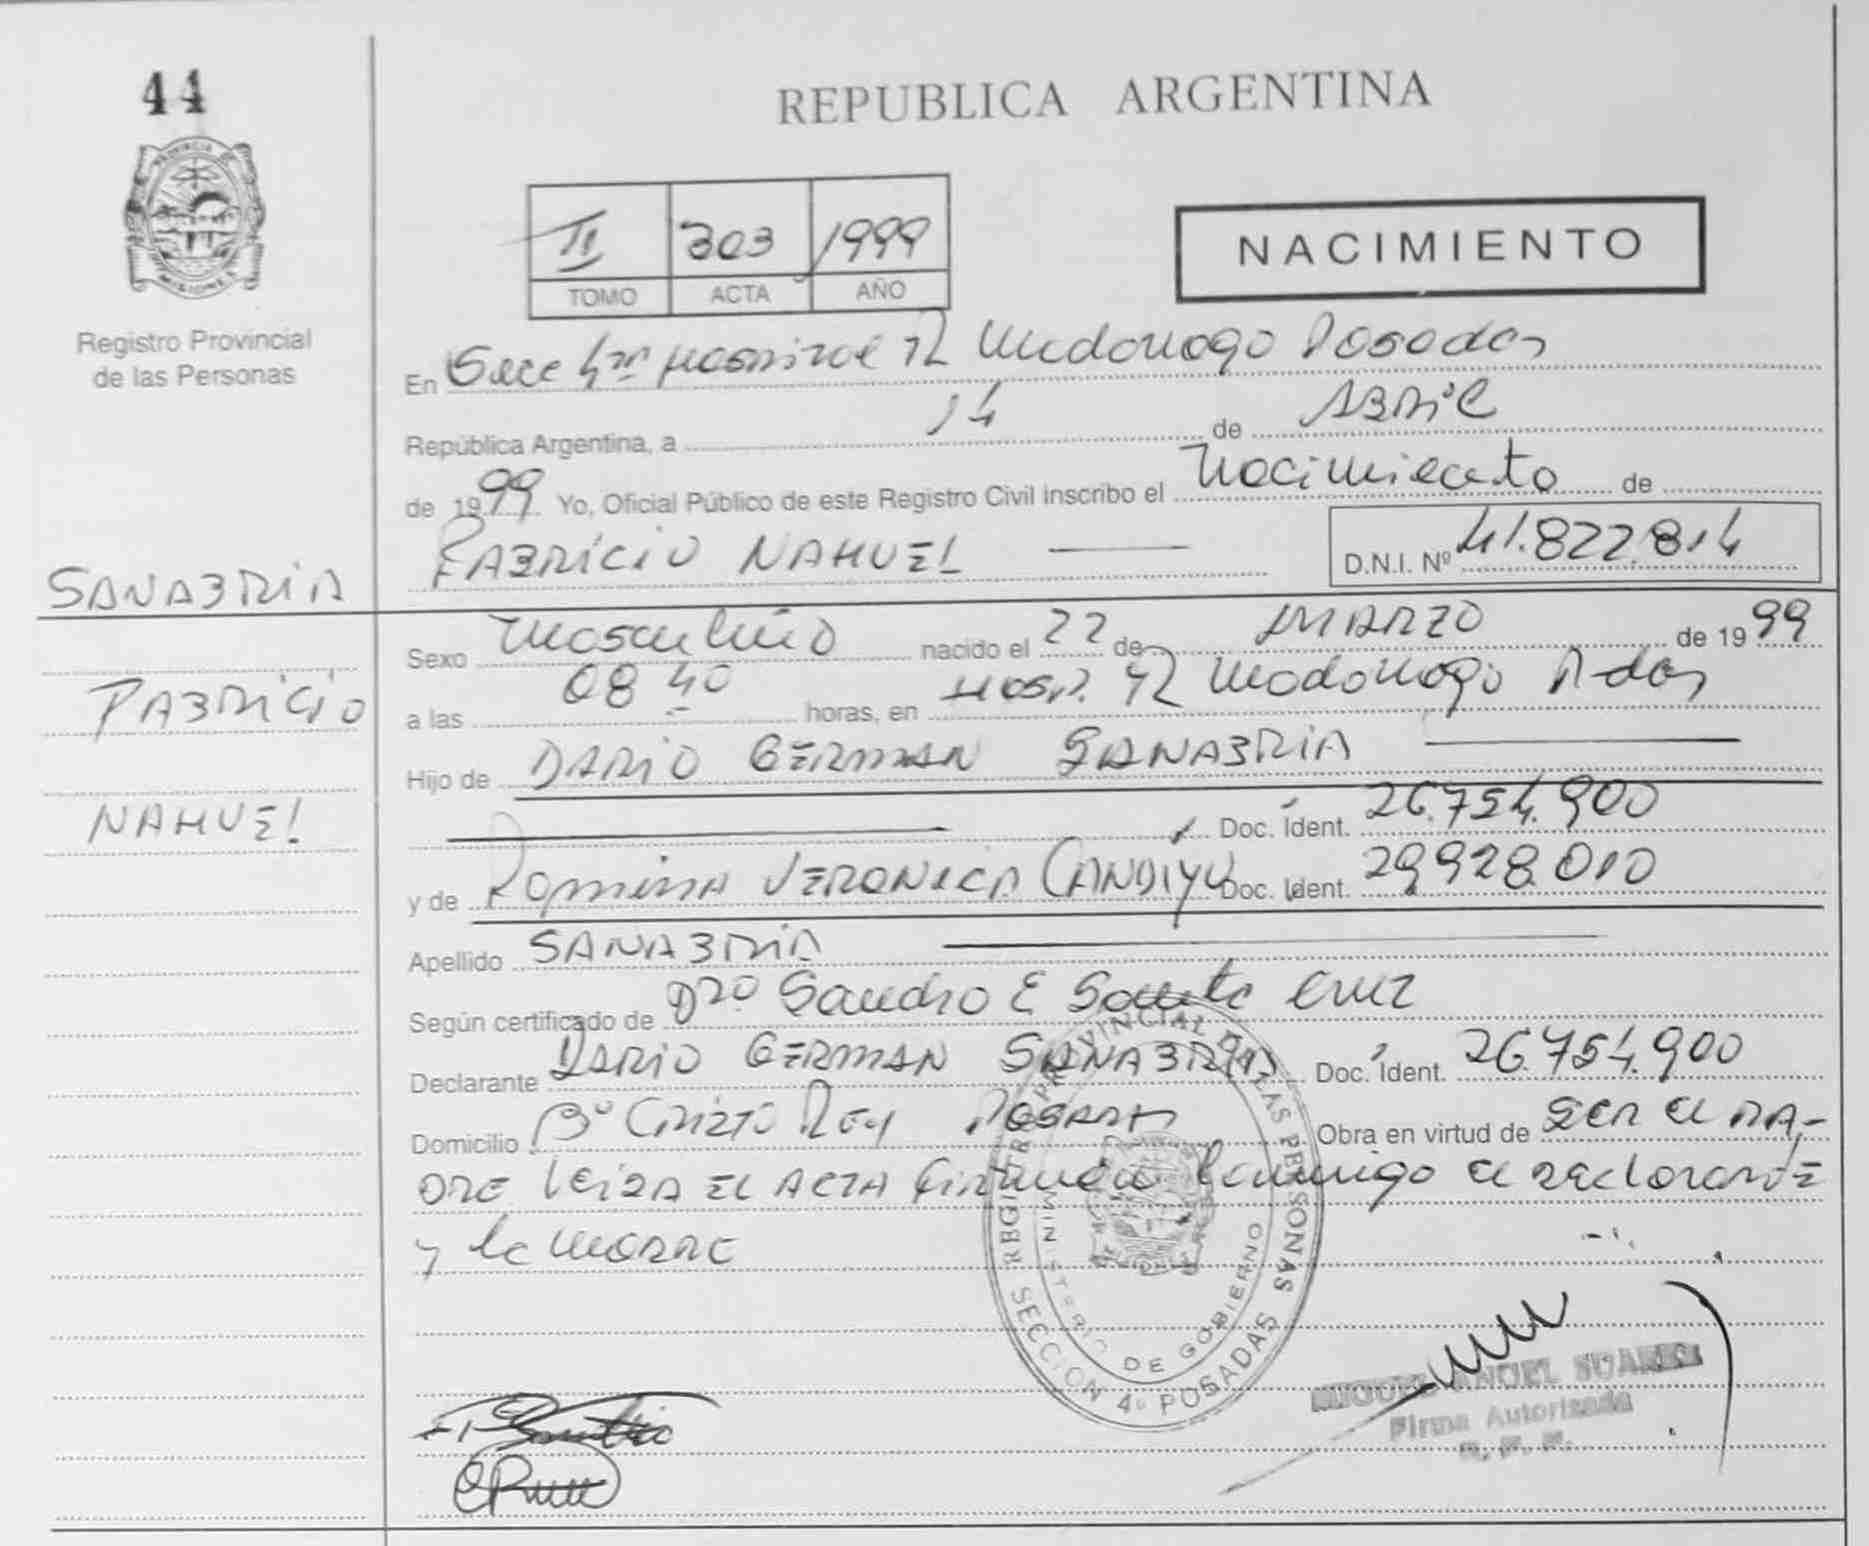 44
PROVINCIA DE MISIONES
Registro Provincial
de las Personas
REPUBLICA ARGENTINA
II 303 1999
TOMO ACTA AÑO
NACIMIENTO
En Secc 4ta Hospital R Madariaga Posadas
República Argentina, a 14 de ABRIL
de 1999 Yo, Oficial Público de este Registro Civil inscribo el Nacimiento de
FABRICIO NAHUEL D.N.I. Nº 41.822.814
SANABRIA
FABRICIO
NAHUEL
Sexo Masculino nacido el 22 de MARZO de 1999
a las 08 40 horas, en Hosp. R Madariaga Pdas
Hijo de DARIO GERMAN SANABRIA
Doc. Ident. 26.754.900
y de ROMINA VERONICA CANDIYU Doc. Ident. 29.928.010
Apellido SANABRIA
Según certificado de Sandro E Santa Cruz
Declarante DARIO GERMAN SANABRIA Doc. Ident. 26.754.900
Domicilio Bº CRISTO REY POSADAS Obra en virtud de SER el PA-
DRE LEIDA EL ACTA FIRMAN Conmigo el declarante
y la MADRE
REGISTRO PROVINCIAL DE LAS PERSONAS
MINISTERIO DE GOBIERNO
SECCION 4º POSADAS
MIGUEL ANGEL SUAREZ
Firma Autorizada